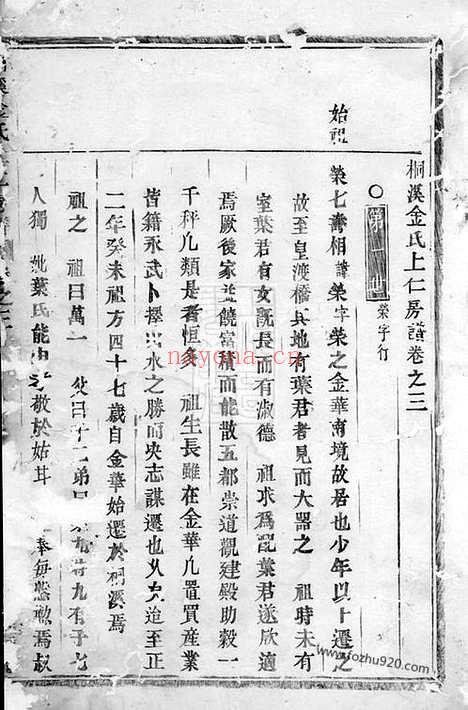 桐溪金氏上仁房譜卷之三
第一世 榮字行
始祖
榮七壽相諱榮字榮之金華南境故居也少年以卜遷之
故至皇渡橋其地有葉君者見而大器之 祖時未有
室葉君有女既長而有淑德 祖求為配葉君遂欣適
焉厥後家益饒富積而能散五都崇道觀建殿助穀一
千秤凡類是者恒多 祖生長雖在金華凡置買産業
皆籍永武卜擇山水之勝而決志謀遷也 迨至正
二年癸未祖方四十七歲自金華始遷於桐溪焉
祖之 祖曰萬一 父曰十二弟曰 九有子七
人獨 妣葉氏能 敬於姑 奉每慇懃焉叔
nayona.cn
www.fozhu920.com